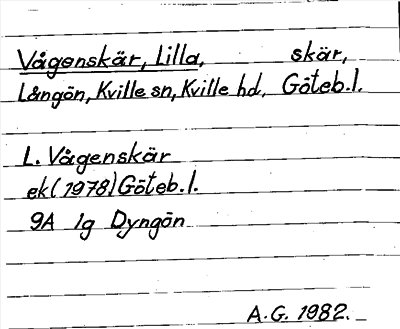 Vågenskär, Lilla, skär,
Långön, Kville sn, Kville hd, Göteb.l.
L. Vågenskär
ek(1978)Göteb.l.
9A 1g Dyngön
A.G. 1982.